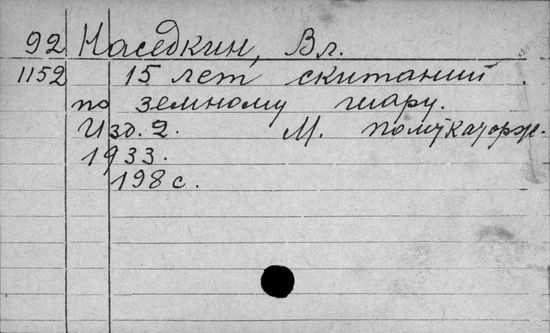 92 Наседкин, Вл.
1152 15 лет скитаний
по земному шару.
Изд. 2. М. политкаторж.
1933.
198 с.